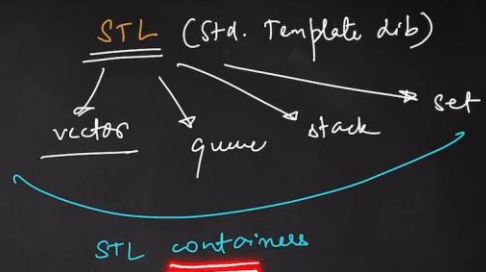 STL (Std. Template Lib)
vector queue stack set
STL containers